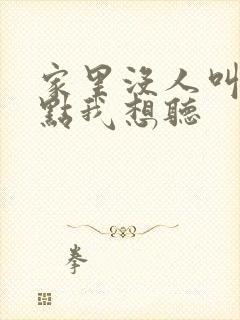 家里沒人叫
點我想聽
拳